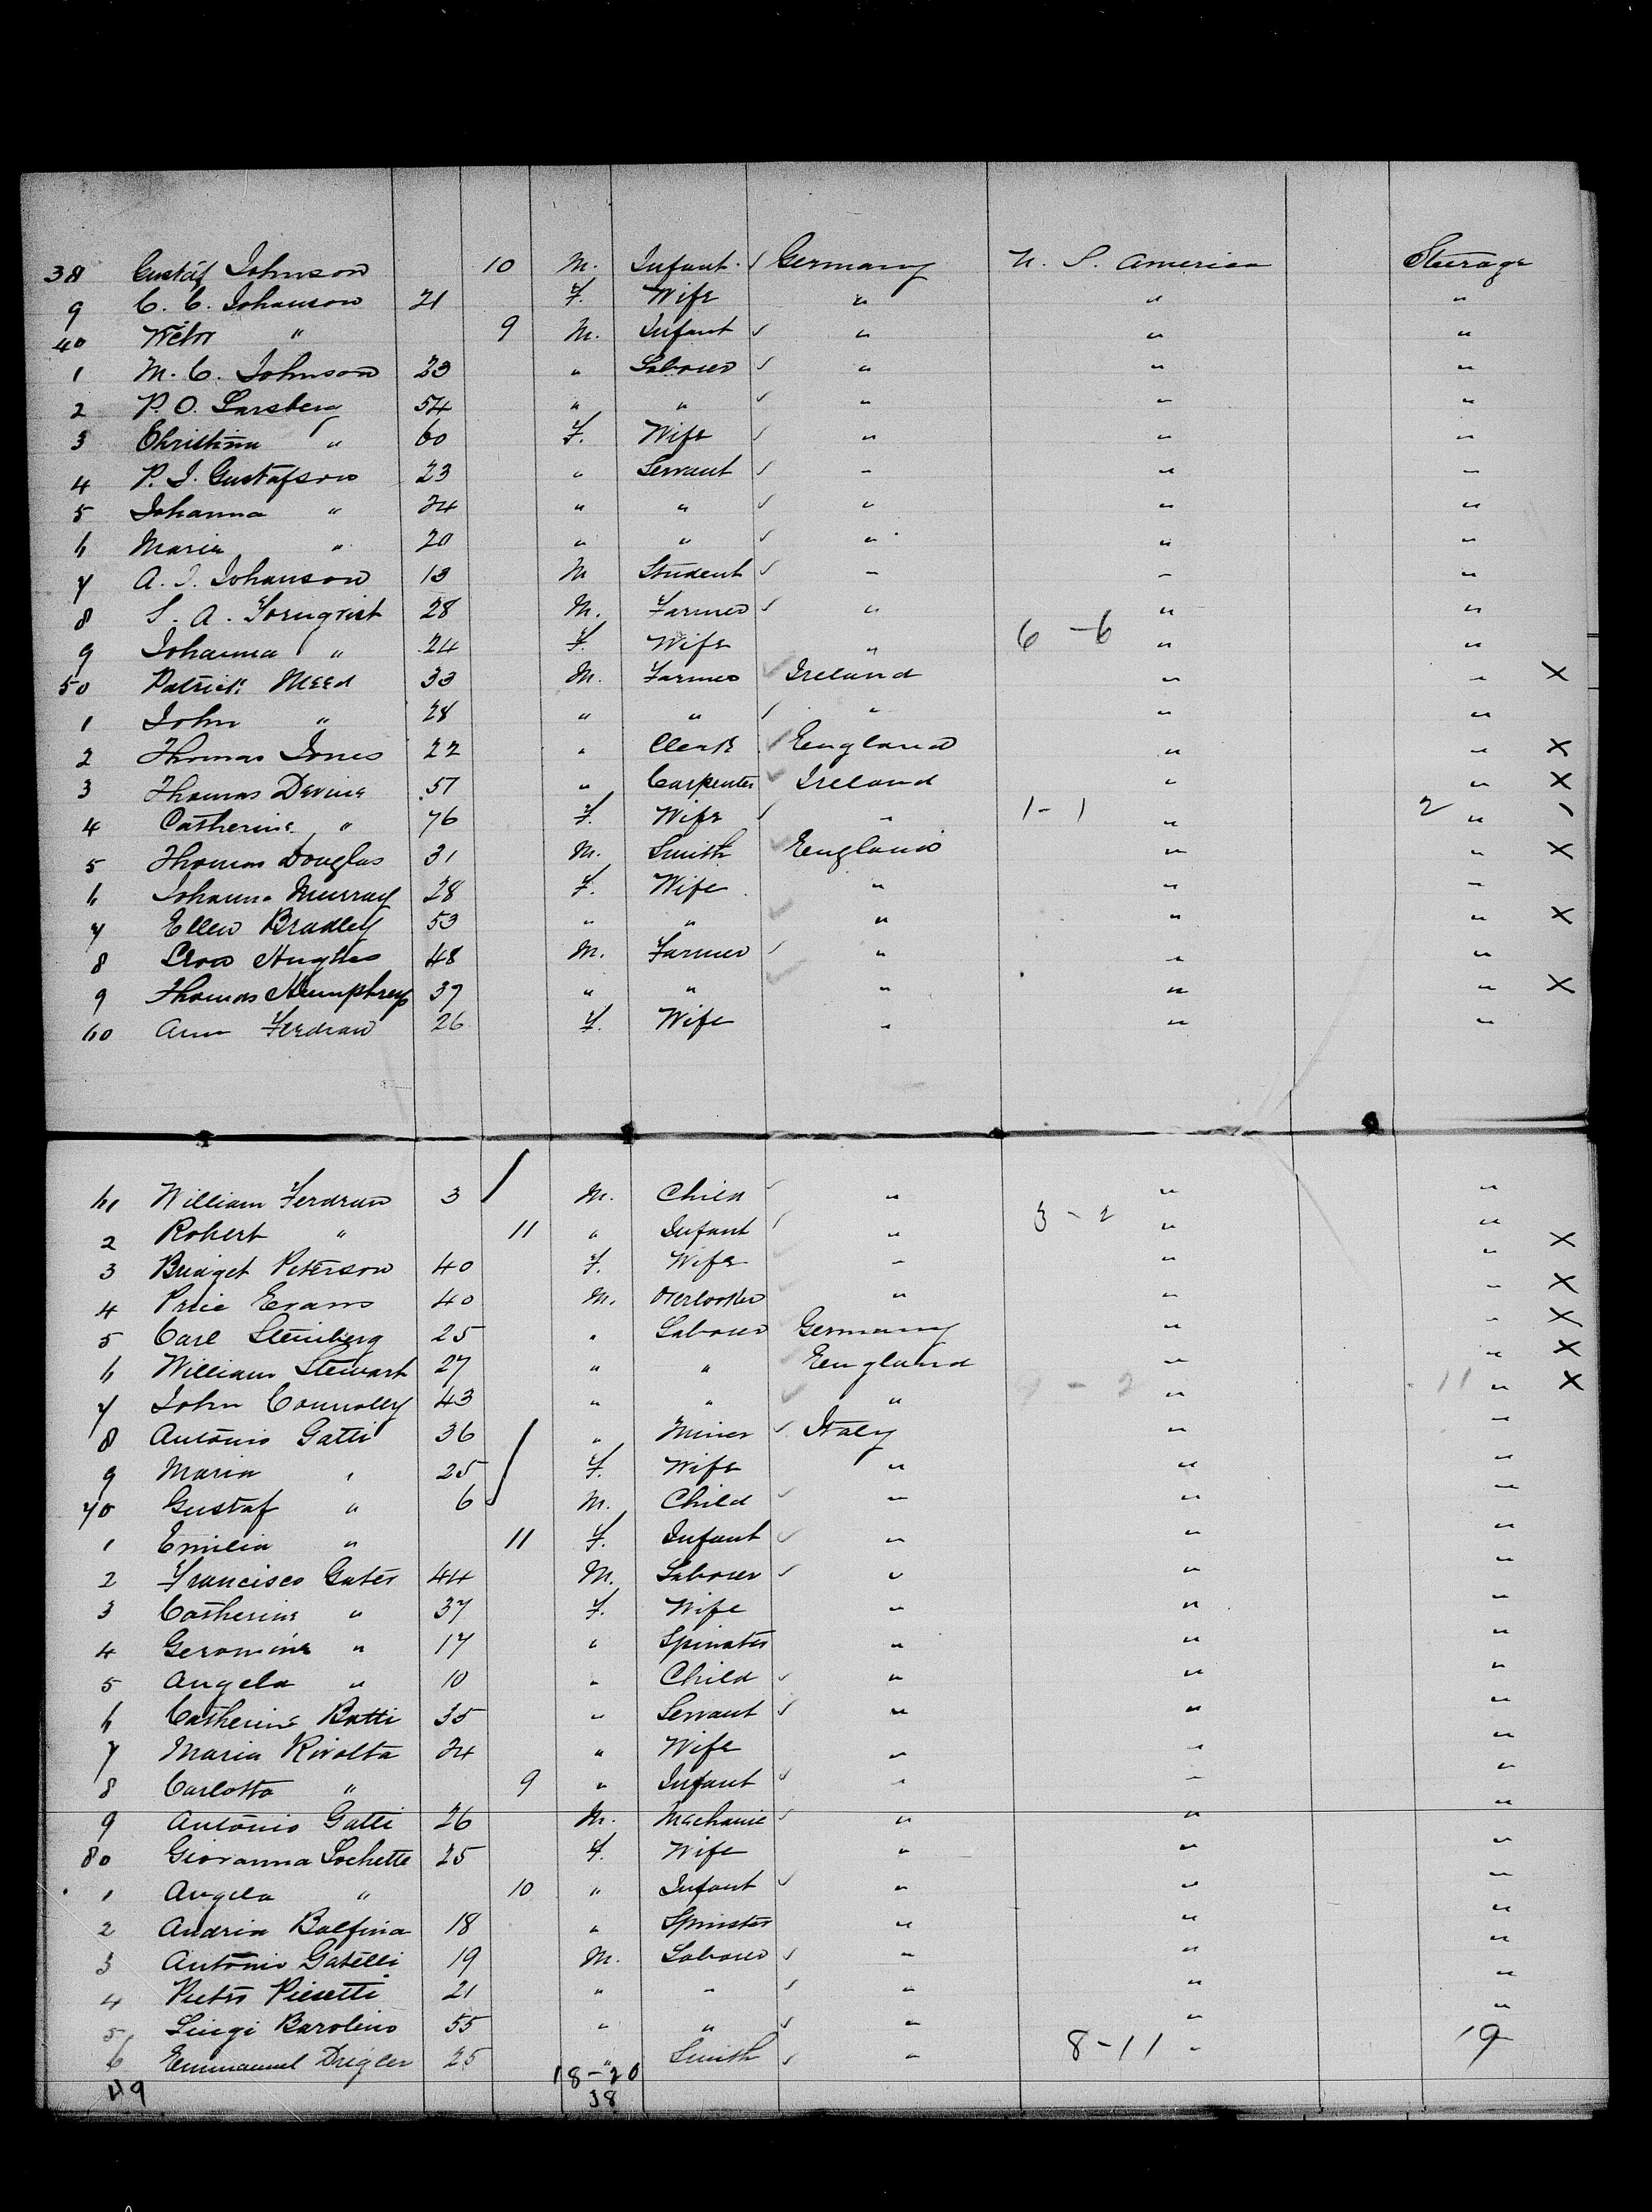 38 Gustaf Johnson 10 M. Infant. Germany U. S. America Steerage
9 C. C. Johanson 21 F. Wife " " "
40 " 9 M. Infant " " "
1 M. C. Johnson 23 " Laborer " " "
2 P. O. Larsberg 54 " " " " "
3 Christina " 60 F. Wife " " "
4 P. J. Gustafson 23 " Servant " " "
5 Johanna " 24 " " " " "
6 Maria " 20 " " " " "
7 A. J. Johanson 13 M Student " " "
8 S. A. Tornqvist 28 M. Farmer " " "
9 Johanna " 24 F. Wife " 6-6 " "
50 Patrick Meed 33 M. Farmer Ireland " " X
1 John " 28 " " " " "
2 Thomas Jones 22 " Clerk England " " X
3 Thomas Devine 57 " Carpenter Ireland " " X
4 Catherine " 76 F. Wife " 1-1 " 2 "
5 Thomas Douglas 31 M. Smith England " " X
6 Johanna Murray 28 F. Wife " " "
7 Ellen Bradley 53 " " " " " X
8 Hughes 48 M. Farmer " " "
9 Thomas Humphreys 37 " " " " " X
60 Ann Ferdran 26 F. Wife " " "
61 William Ferdran 3 M. Child " " "
2 Robert " 11 " Infant " 3-2 " "
3 Bridget Peterson 40 F. Wife " " " X
4 Price Evans 40 M. Overlooker " " " X
5 Carl Steinberg 25 " Laborer Germany " " X
6 William Stewart 27 " " England " " X
7 John Connolly 43 " " " " 11 " X
8 Antonio Gatti 36 " Miner Italy " "
9 Maria " 25 F. Wife " " "
70 Gustaf " 6 M. Child " " "
1 Emilia " 11 F. Infant " " "
2 Francisco Gater 44 M. Laborer " " "
3 Catherine " 37 F. Wife " " "
4 Geromina " 17 " Spinster " " "
5 Angela " 10 " Child " " "
6 Catherine Botti 35 " Servant " " "
7 Maria Rivolta 24 " Wife " " "
8 Carlotta " 9 " Infant " " "
9 Antonio Gatti 26 M. Mechanic " " "
80 Giovanna Lochette 25 F. Wife " " "
1 Angela " 10 " Infant " " "
2 Andria Balfina 18 " Spinster " " "
3 Antonio Gatelli 19 M. Laborer " " "
4 Pietro Piesetti 21 " " " " "
5 Luigi Barolino 55 " " " " "
6 Emmanuel Drigler 25 " Smith " 8-11 " 19
49 18-20
38